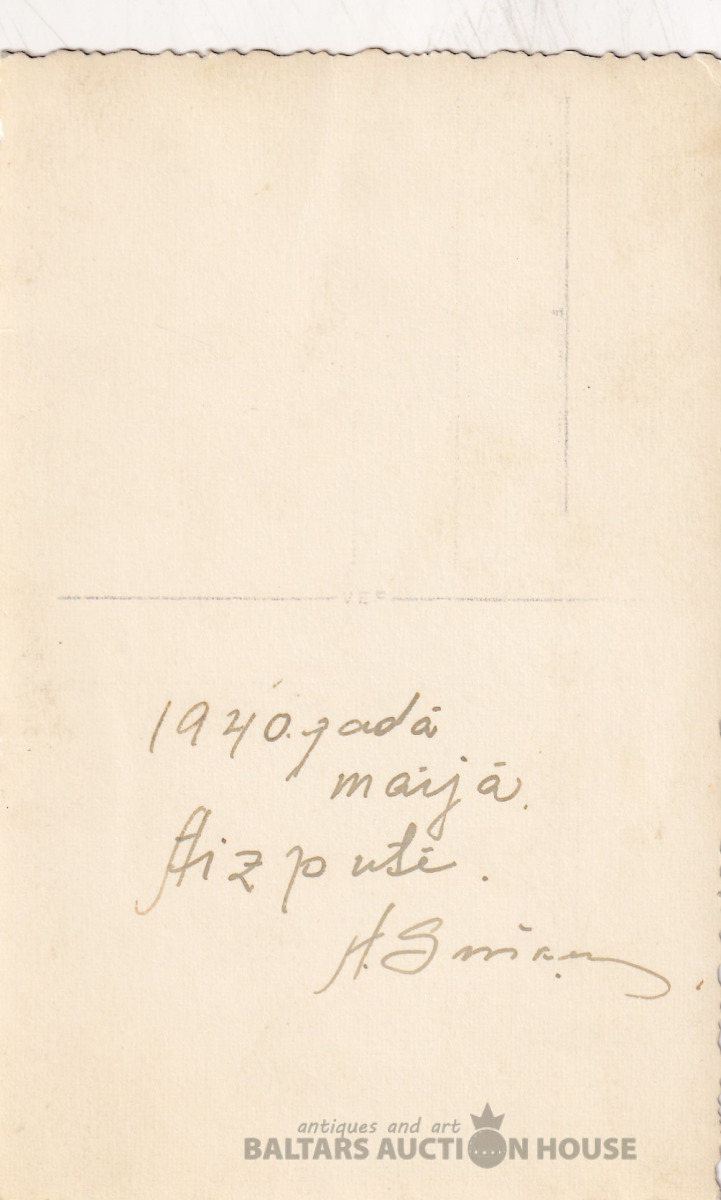 VEF
1940. gadā
maijā.
Aizputē.
A.
antiques and art
BALTARS AUCTION HOUSE